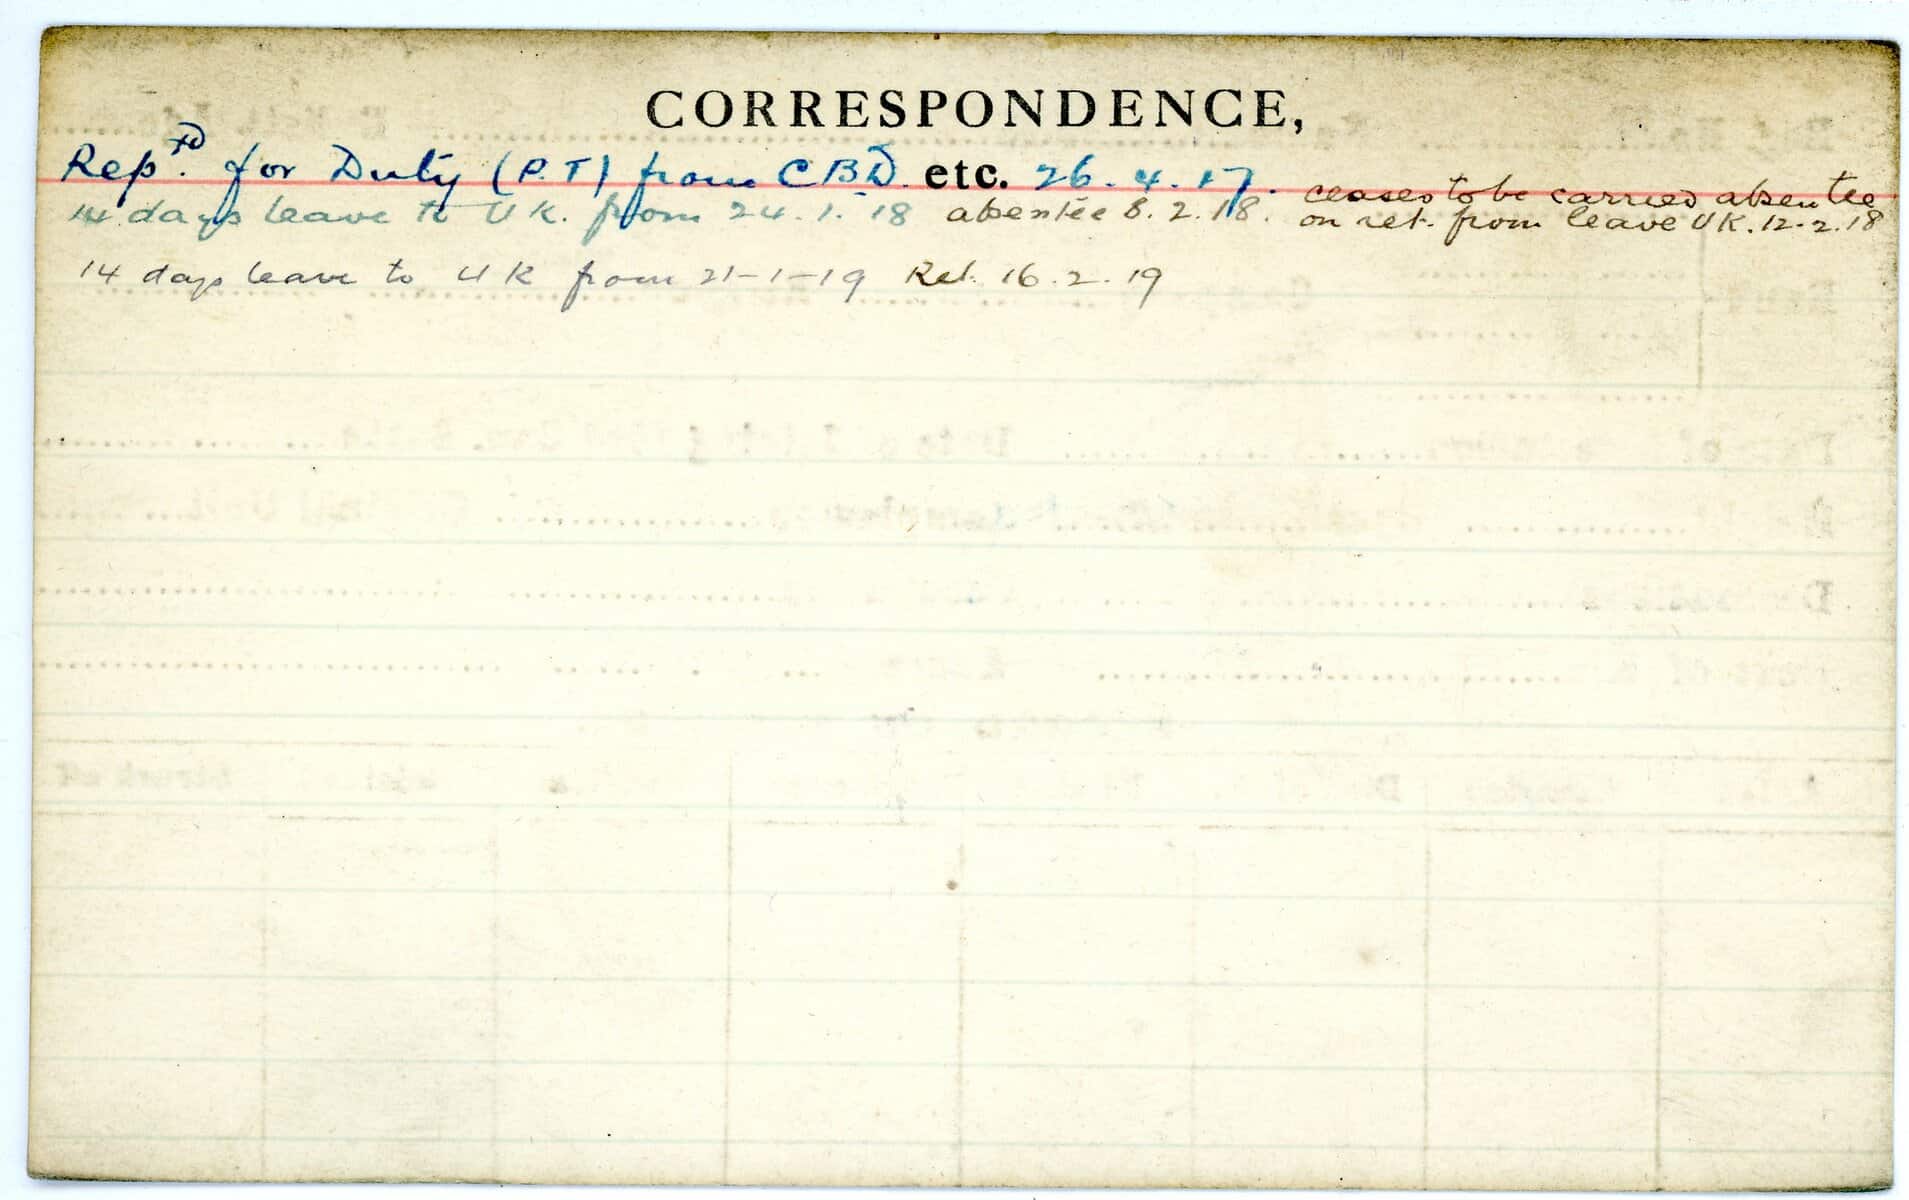 CORRESPONDENCE,
Repᵗᵈ. for Duty (P.T) from C B D. etc. 26.4.17.
14 days leave to U K. from 24.1.18 absentee 8.2.18. ceases to be carried absentee
on ret. from leave U K. 12-2.18
14 days leave to U K from 21-1-19 Ret. 16.2.19